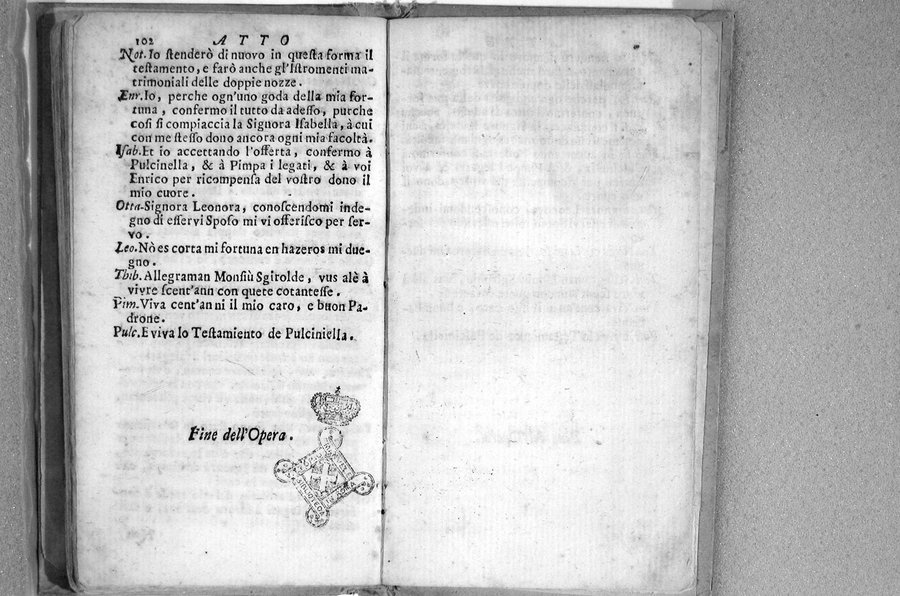 102 ATTO
Not. Io stenderò di nuovo in questa forma il
testamento, e farò anche gl'Istromenti ma-
trimoniali delle doppie nozze.
Enr. Io, perche ogn'uno goda della mia for-
tuna, confermo il tutto da adesso, purche
così si compiaccia la Signora Isabella, à cui
con me stesso dono ancora ogni mia facoltà.
Isab. Et io accettando l'offerta, confermo à
Pulcinella, & à Pimpa i legati, & à voi
Enrico per ricompensa del vostro dono il
mio cuore.
Otta. Signora Leonora, conoscendomi inde-
gno di esservi Sposo mi vi offerisco per ser-
vo.
Leo. Nò es corta mi fortuna en hazeros mi due-
gno.
Tbib. Allegraman Monsiù Sgirolde, vus alè à
vivre scent'ann con quete cotantesse.
Pim. Viva cent'anni il mio caro, e buon Pa-
drone.
Pulc. E viva lo Testamiento de Pulciniella.
Fine dell'Opera.